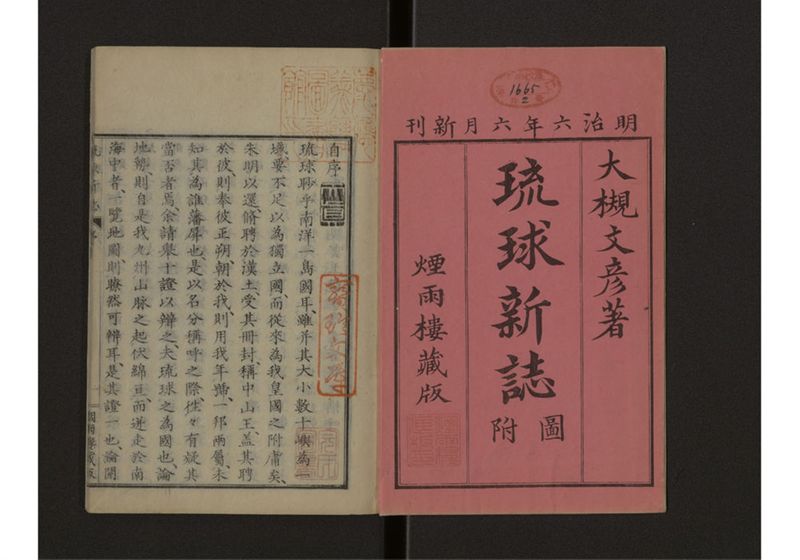 1665
2
明治六年六月新刊
大槻文彦著
琉球新誌
圖附
煙雨樓藏版
自序
琉球眇乎南洋一島國耳、雖并其大小數十嶼為一
壤、要不足以為獨立國、而從來為我皇國之附庸矣、
朱明以還、脩聘於漢土、受其冊封、稱中山王、蓋其聘
於彼、則奉彼正朔、朝於我、則用我年號、一邦兩屬、未
知其為誰藩屏也、是以名分稱呼之際、往々有疑其
當否者焉、余請舉十證以辯之、夫琉球之為國也、論
地勢、則自是我九州山脉之起伏綿亙、而迸走於南
海中者、一覽地圖、則瞭然可辯耳、是其證一也、論開
煙雨樓藏版